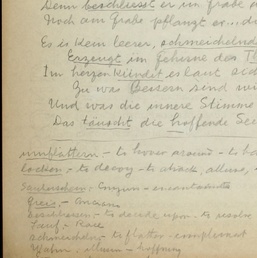 Denn beschliesst er im Grabe d
Noch am Grabe pflanzt er...di
Es is kein leerer, schmeichelnde
Erzeugt im Gehirne des T
Im herzen kündet es laut sich
Zu was Besserm sind wi
Und was die innere Stimme
Das täuscht die hoffende See
umflattern - to hover around - to
locken - to decoy - to attract, allure,
Greis -
beschliessen - to decide upon - to resolve
schmeicheln - to flatter -
Wahn - illusion -